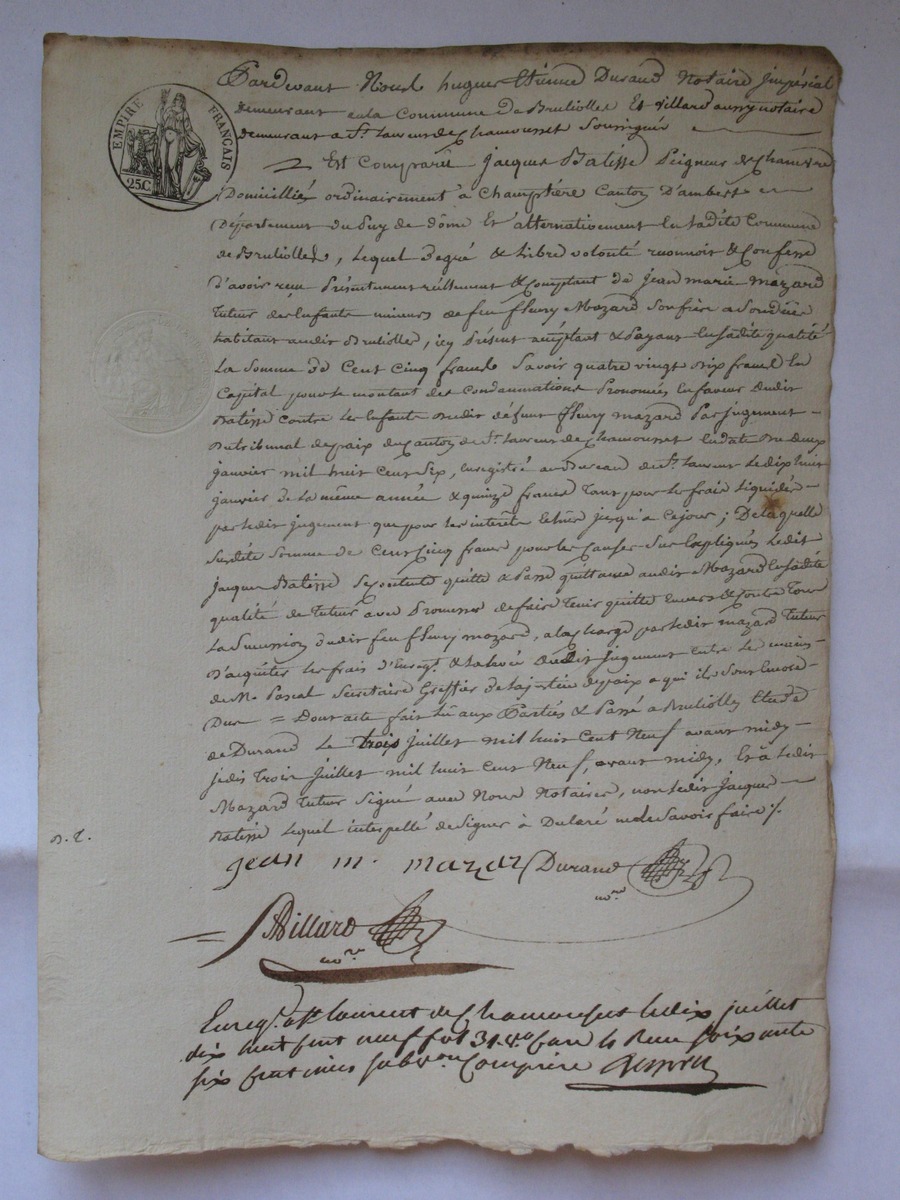 EMPIRE FRANÇAIS
25C.
Pardevant Nous hugues Etienne Durand Notaire impérial
demeurant en la Commune de Bruliolles Et Villard aussy notaire
demeurant a St. Laurent de Chamousset Soussignés
Est Comparû Jacques Batisse Peigneur de Chanvre
Domicillié ordinairement à Champtière Canton D'ambert
Département du Puy de dôme Et alternativement en ladite Commune
de Bruliolles, Lequel De gré & Libre volonté reconnoit & Confesse
D'avoir reçu Présentement réellement & Comptant de jean marie Mazard
tuteur des Enfants mineurs de feu fleury Mazard Son frère
habitant audit Brulliolle, icy Présent acceptant & Payant en sadite qualité
La Somme de Cent Cinq francs Savoir quatre vingt dix francs En
Capital pour le montant des Condamnations Prononcées En faveur dudit
Batisse Contre les Enfants dudit défunt fleury mazard Par jugement
du tribunal de paix du Canton de St. Laurent de Chamousset En date du deux
janvier mil huit Cent Six, Enregistré au Bureau de St. Laurent Le dix huit
janvier de la même année & quinze francs Tant pour les frais Liquidés
par ledit jugement que pour les interêts jusqu'a ce jour; De laquelle
Susdite Somme de Cent Cinq francs pour les Causes Sus Expliquées Ledit
Jacques Batisse Se Contente quitte & Passe quittance audit Mazard En sadite
qualité de Tuteur avec Promesse de faire Tenir quitte Envers & Contre Tous
La Succession dudit feu fleury mazard, a la Charge par ledit mazard Tuteur
D'acquiter les frais d'Enregt. & dudit jugement Entre les mains
de Mr. Pascal Secrétaire Greffier de la justice de paix a qui ils Sont Encore
Dus = Dont acte fait Lû aux Parties & Passé a Brulliolles Etude
de Durand Le trois juillet mil huit Cent Neuf avant midy
jedis Trois juillet mil huit Cent Neuf, avant midy, Et a Ledit
Mazard Tuteur Signé avec Nous Notaires, non Ledit Jacques
Batisse Lequel interpellé de Signer à Déclaré ne le Savoir faire ./.
jean m. mazar Durand
nore
Villard
nore
Enregé. a St. laurent de Chamousset le dix juillet
dix huit Cent neuf fol. 31 Vo Case 4 Reçu Soixante
six Centimes Subvon Comprise